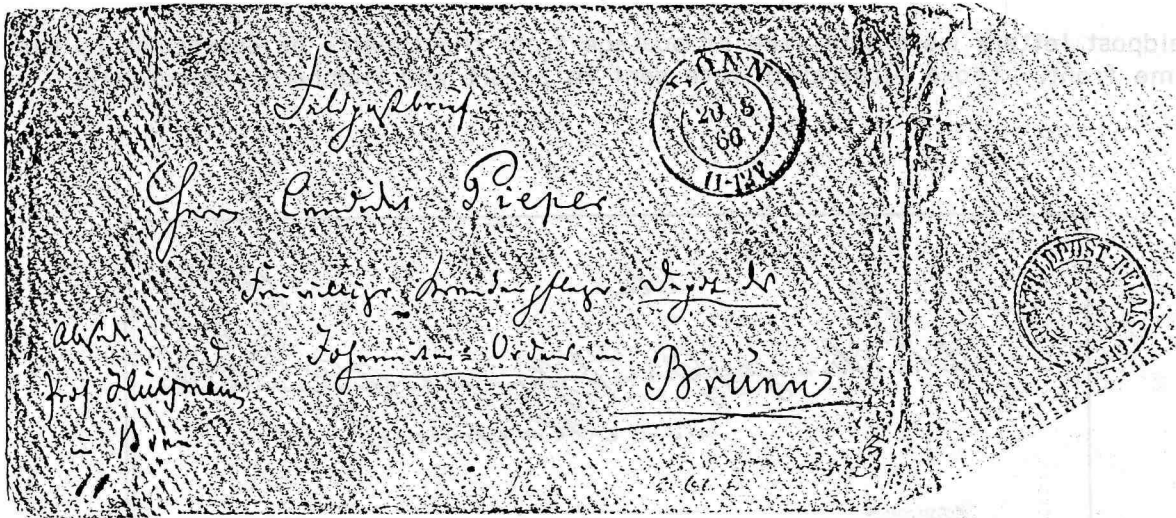 Feldpostbrief
BONN
20 8
66
11-12V.
Herrn Candidat Pieper
Freiwilliger Krankenpfleger. Depot des
Johanniter-Ordens in Brünn
Prof.
in Bonn
FELDPOST-RELAIS